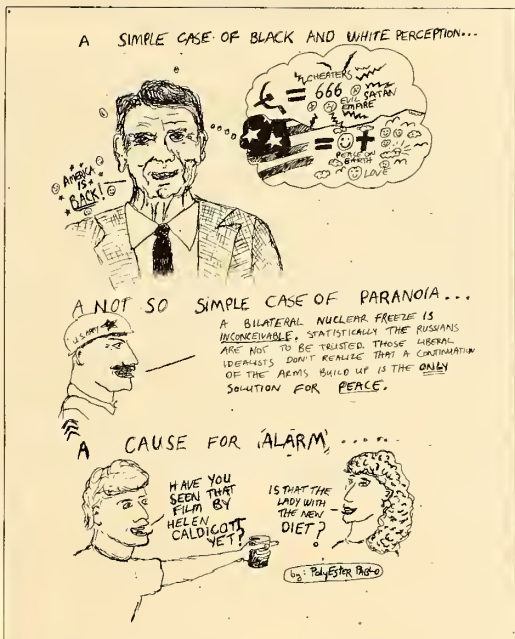 A SIMPLE CASE OF BLACK AND WHITE PERCEPTION...
CHEATERS
= 666
SATAN
EVIL
EMPIRE
=
PEACE ON
EARTH
LOVE
AMERICA
IS
BACK!
A NOT SO SIMPLE CASE OF PARANOIA...
U.S. ARMY
A BILATERAL NUCLEAR FREEZE IS
INCONCEIVABLE. STATISTICALLY THE RUSSIANS
ARE NOT TO BE TRUSTED. THOSE LIBERAL
IDEALISTS DON'T REALIZE THAT A CONTINUATION
OF THE ARMS BUILD UP IS THE ONLY
SOLUTION FOR PEACE.
A CAUSE FOR 'ALARM'.....
HAVE YOU
SEEN THAT
FILM BY
HELEN
CALDICOTT
YET?
IS THAT THE
LADY WITH
THE NEW
DIET?
by: PolyEster PABLO